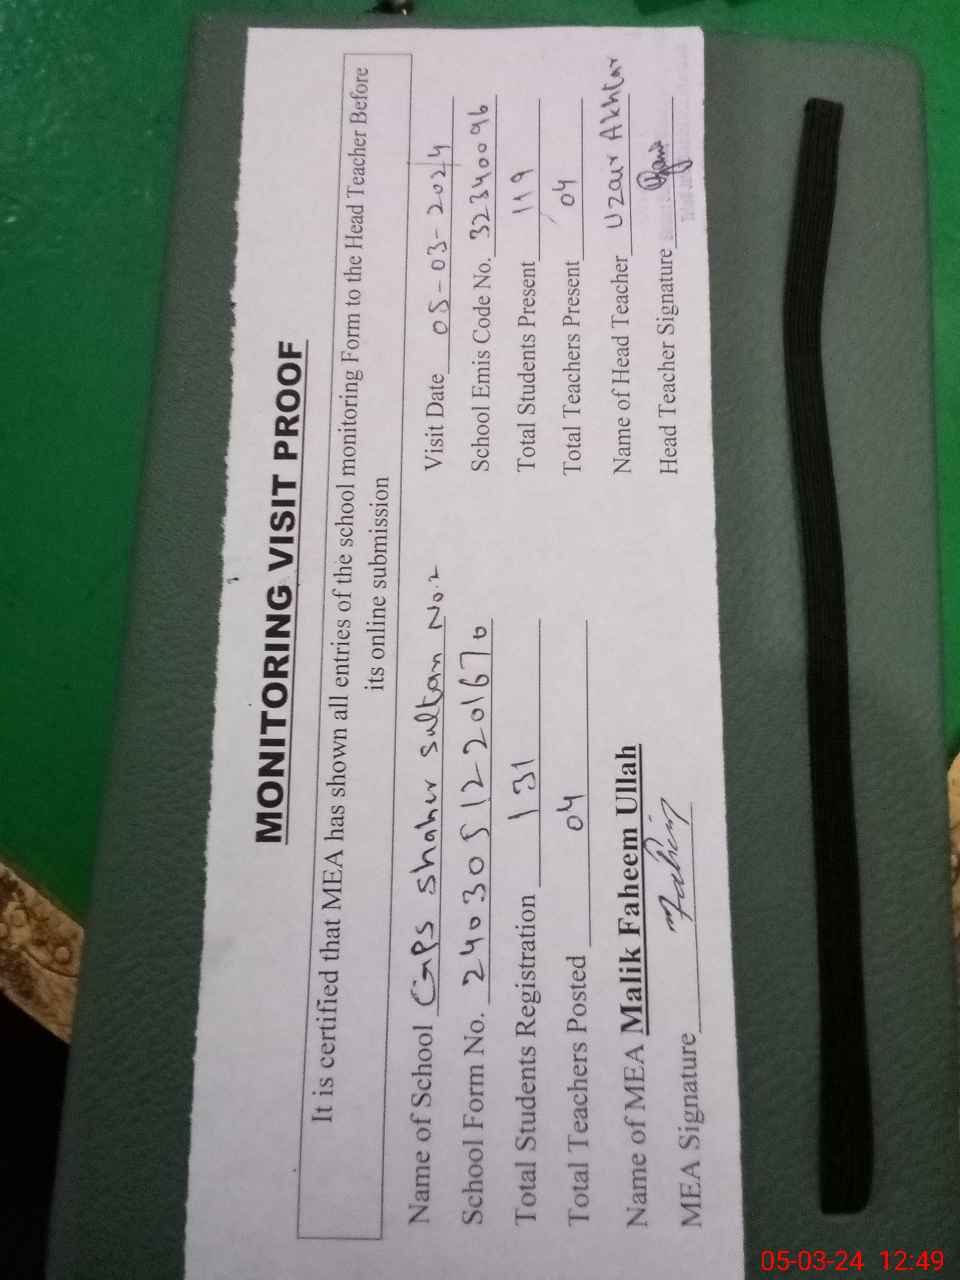 MONITORING VISIT PROOF
It is certified that MEA has shown all entries of the school monitoring Form to the Head Teacher Before
its online submission
Name of School GPS shaher sultan No.2
Visit Date 05-03-2024
School Form No. 2403051220167
School Emis Code No. 32340096
Total Students Registration 131
Total Students Present 119
Total Teachers Posted 04
Total Teachers Present 04
Name of MEA Malik Faheem Ullah
Name of Head Teacher Uzair Akhtar
MEA Signature Faheim
Head Teacher Signature
05-03-24 12:49